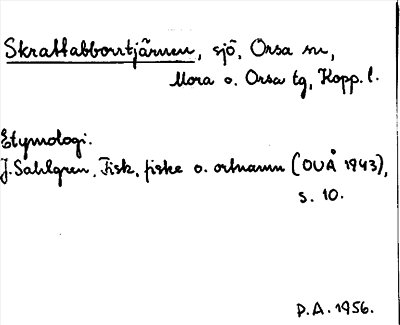 Skrattabborrtjärnen, sjö, Orsa sn,
Mora o. Orsa tg, Kopp. l.
Etymologi.
J. Sahlgren, Fisk, fiske o. ortnamn (OUÅ 1943),
s. 10.
D.A. 1956.